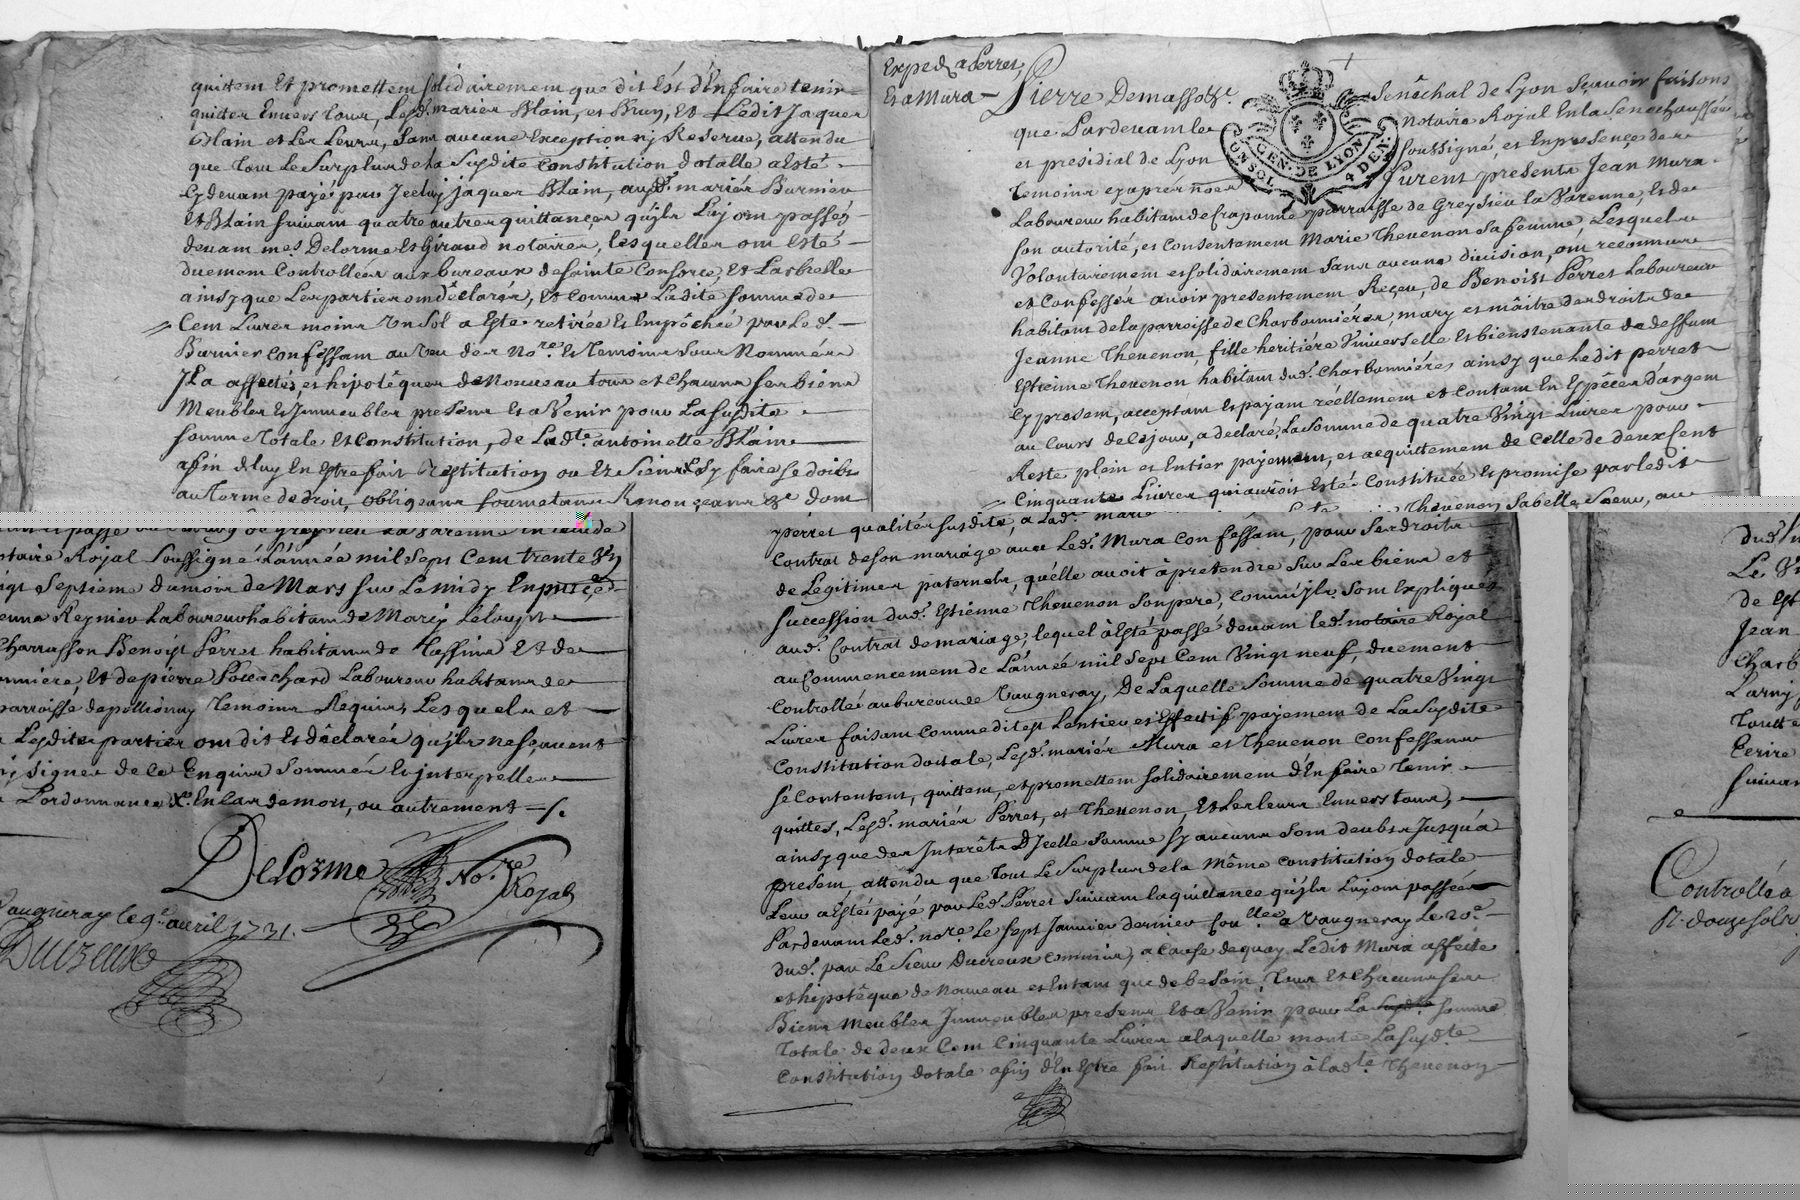 quittent Et promettent solidairement que dit Est d'En faire tenir
quitter Envers tous, Lesd. mariés Blain, et Brun, Et Ledit Jaques
Blain et Les Leurs, sans aucune Exception ny Reserve, attendu
que tout le Surplus de La Susdite Constitution dotalle a Esté
Cy devant payé par Jceluy jaques Blain, ausd. mariés Burnier
et Blain suivant quatre autres quittances qu'jls Luy ont passés
devant mes. Delorme Et Giraud notaires, lesquelles ont Esté
duement Controllées aux bureaux de sainte Consorce, Et Larbresle
ainsy que Les parties ont déclarés, Et comme Ladite somme de
Cent Livres moins Un sol a Esté retirée Et Empôchée par Led.
Burnier confessant au Veu des Nore. Et temoins sous Nommés
Jl a affectés, et hipotéqués de Nouveau tous et chacuns ses biens
Meubles Et Jmmeubles presens Et a Venir pour La susdite
somme totale Et Constitution, de Ladte. antoinette Blain
afin d'luy En Estre fait Restitution ou Es Siens Sy faire se doibt
au terme de droit, obligeans soumetans Renonçeans &c dont
passé au bourg de Greysieu La Varenne
notaire Royal Soussigné L'année mil Sept Cent trente Un
Vingt Septieme du mois de Mars sur Le midy En presence d
Reynier Laboureur habitant de Marcy Leloup
Charrasson Benoist Perret habitans de Tassins Et de
Et de pierre Laboureur habitans de
parroisse de pollionay Temoins Requis, Lesquels et
Lesdites parties ont dit Et déclaré qu'jls ne sçavent
ny signer de ce Enquis Sommés Et jnterpellés
L'ordonnance En Car demott, ou autrement
Delorme Nore Royal
Vaugneray le 9e avril 1731.
Ducreux
Exped. a Perret
Et a Mura
Pierre Demassotz. Senéchal de Lyon Sçavoir faisons
que Pardevant le notaire Royal En la Senechaussée
et presidial de Lyon soussigné, et En presence des
temoins cy après només furent presents Jean Mura
GEN. DE LYON
UN SOL 4 DEN.
Laboureur habitant de Craponne parroisse de Greysieu la Varenne, Et de
son autorité, et Consentement Marie Thevenon sa femme, Lesquels
Volontairement et solidairement sans aucune division, ont reconnus
et Confessés avoir presentement Reçeu, de Benoist Perret Laboureur
habitant de la parroisse de Charbonniéres, mary et maître des droits de
Jeanne Thevenon, fille heritière Universelle et bienstenante de deffunt
Estienne Thevenon habitant dud. Charbonniéres ainsy que ledit perret
Cy present, acceptant Et payant réellement et contant En Espêces d'argent
au Cours de Ce jour, a declaré, La somme de quatre Vingt Livres pour
Reste plein et Entier payement, et acquittement de Celle de deux Cent
Cinquante Livres qui auroit Esté Constituée Et promise par ledit
perret qualité susdite, a Lad. marie Thevenon Sa belle Soeur, au
Contrat de son mariage avec Led. Mura Confessant, pour Ses droits
de Legitimes paternels, qu'elle avoit à pretendre Sur Les biens et
succession dud. Estienne Thevenon Son pere, comm'jls sont Expliqués
aud. Contrat de mariage, lequel à Esté passé devant led. notaire Royal
au Commencement de L'année mil Sept Cent Vingt neuf, duement
controllé au bureau de Vaugneray, De Laquelle Somme de quatre Vingt
Livres faisant comme dit est L'entier et Effectif payement de La Susdite
Constitution dotale, Lesd. mariés Mura et Thevenon Confessans
se Contentent, quittent, et promettent solidairement d'En faire tenir
quittes, Lesd. mariés Perret, et Thevenon, Et Les leurs Envers tous,
ainsy que des Jnterêts D'Jcelle Somme sy aucuns Sont deubs Jusqu'à
present, attendu que tout Le Surplus de la même constitution dotale
Leur a Esté payé par Led. Perret Suivant la quittance qu'jls Luy ont passée
Pardevant Led. nore. Le sept Janvier dernier Conllée a Vaugneray Le 20e
dud. par Le Sieur Ducreux commis, a Cause de quoy Ledit Mura affecte
et hipotêque de Nouveau et En tant que de besoin, Tous Et Chacuns ses
Biens Meubles Jmmeubles presens Et a Venir pour La somme
Totale de deux Cent Cinquante Livres a laquelle monte La susdte
Constitution dotale afin d'En Estre fait Restitution à ladte Thevenon
de
Jean
Charb
Ecrire
suivan
Controllé a
R. douze sols